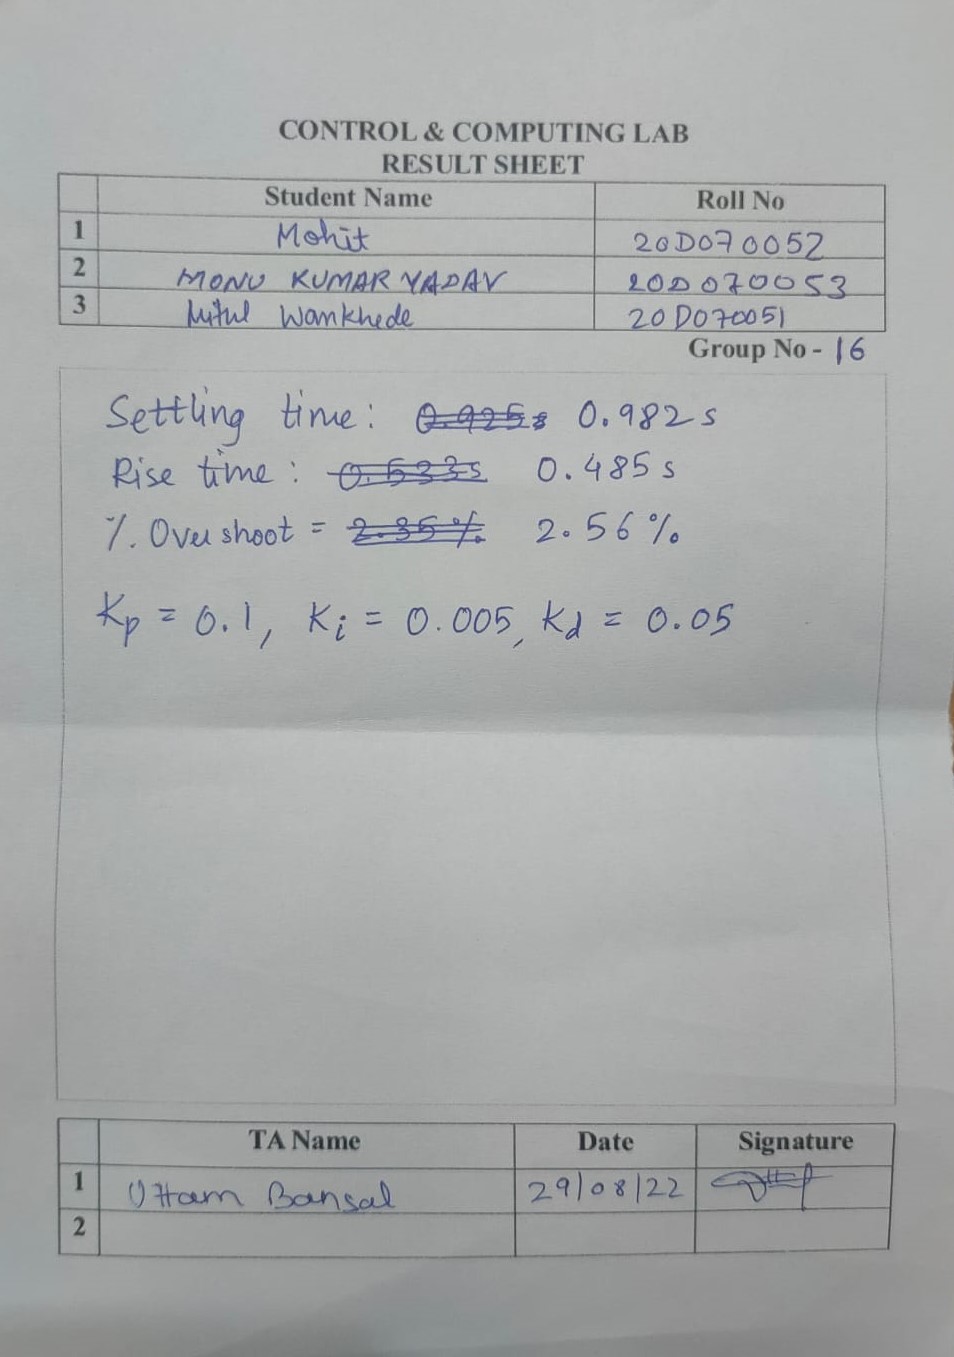 CONTROL & COMPUTING LAB
RESULT SHEET
Student Name Roll No
1 Mohit 20D070052
2 MONU KUMAR YADAV 20D070053
3 Mitul Wankhede 20D070051
Group No - 16
Settling time: 0.925s 0.982 s
Rise time: 0.533s 0.485 s
%. Overshoot = 2.35% 2.56%
Kp = 0.1, Ki = 0.005, Kd = 0.05
TA Name Date Signature
1 Uttam Bansal 29/08/22
2